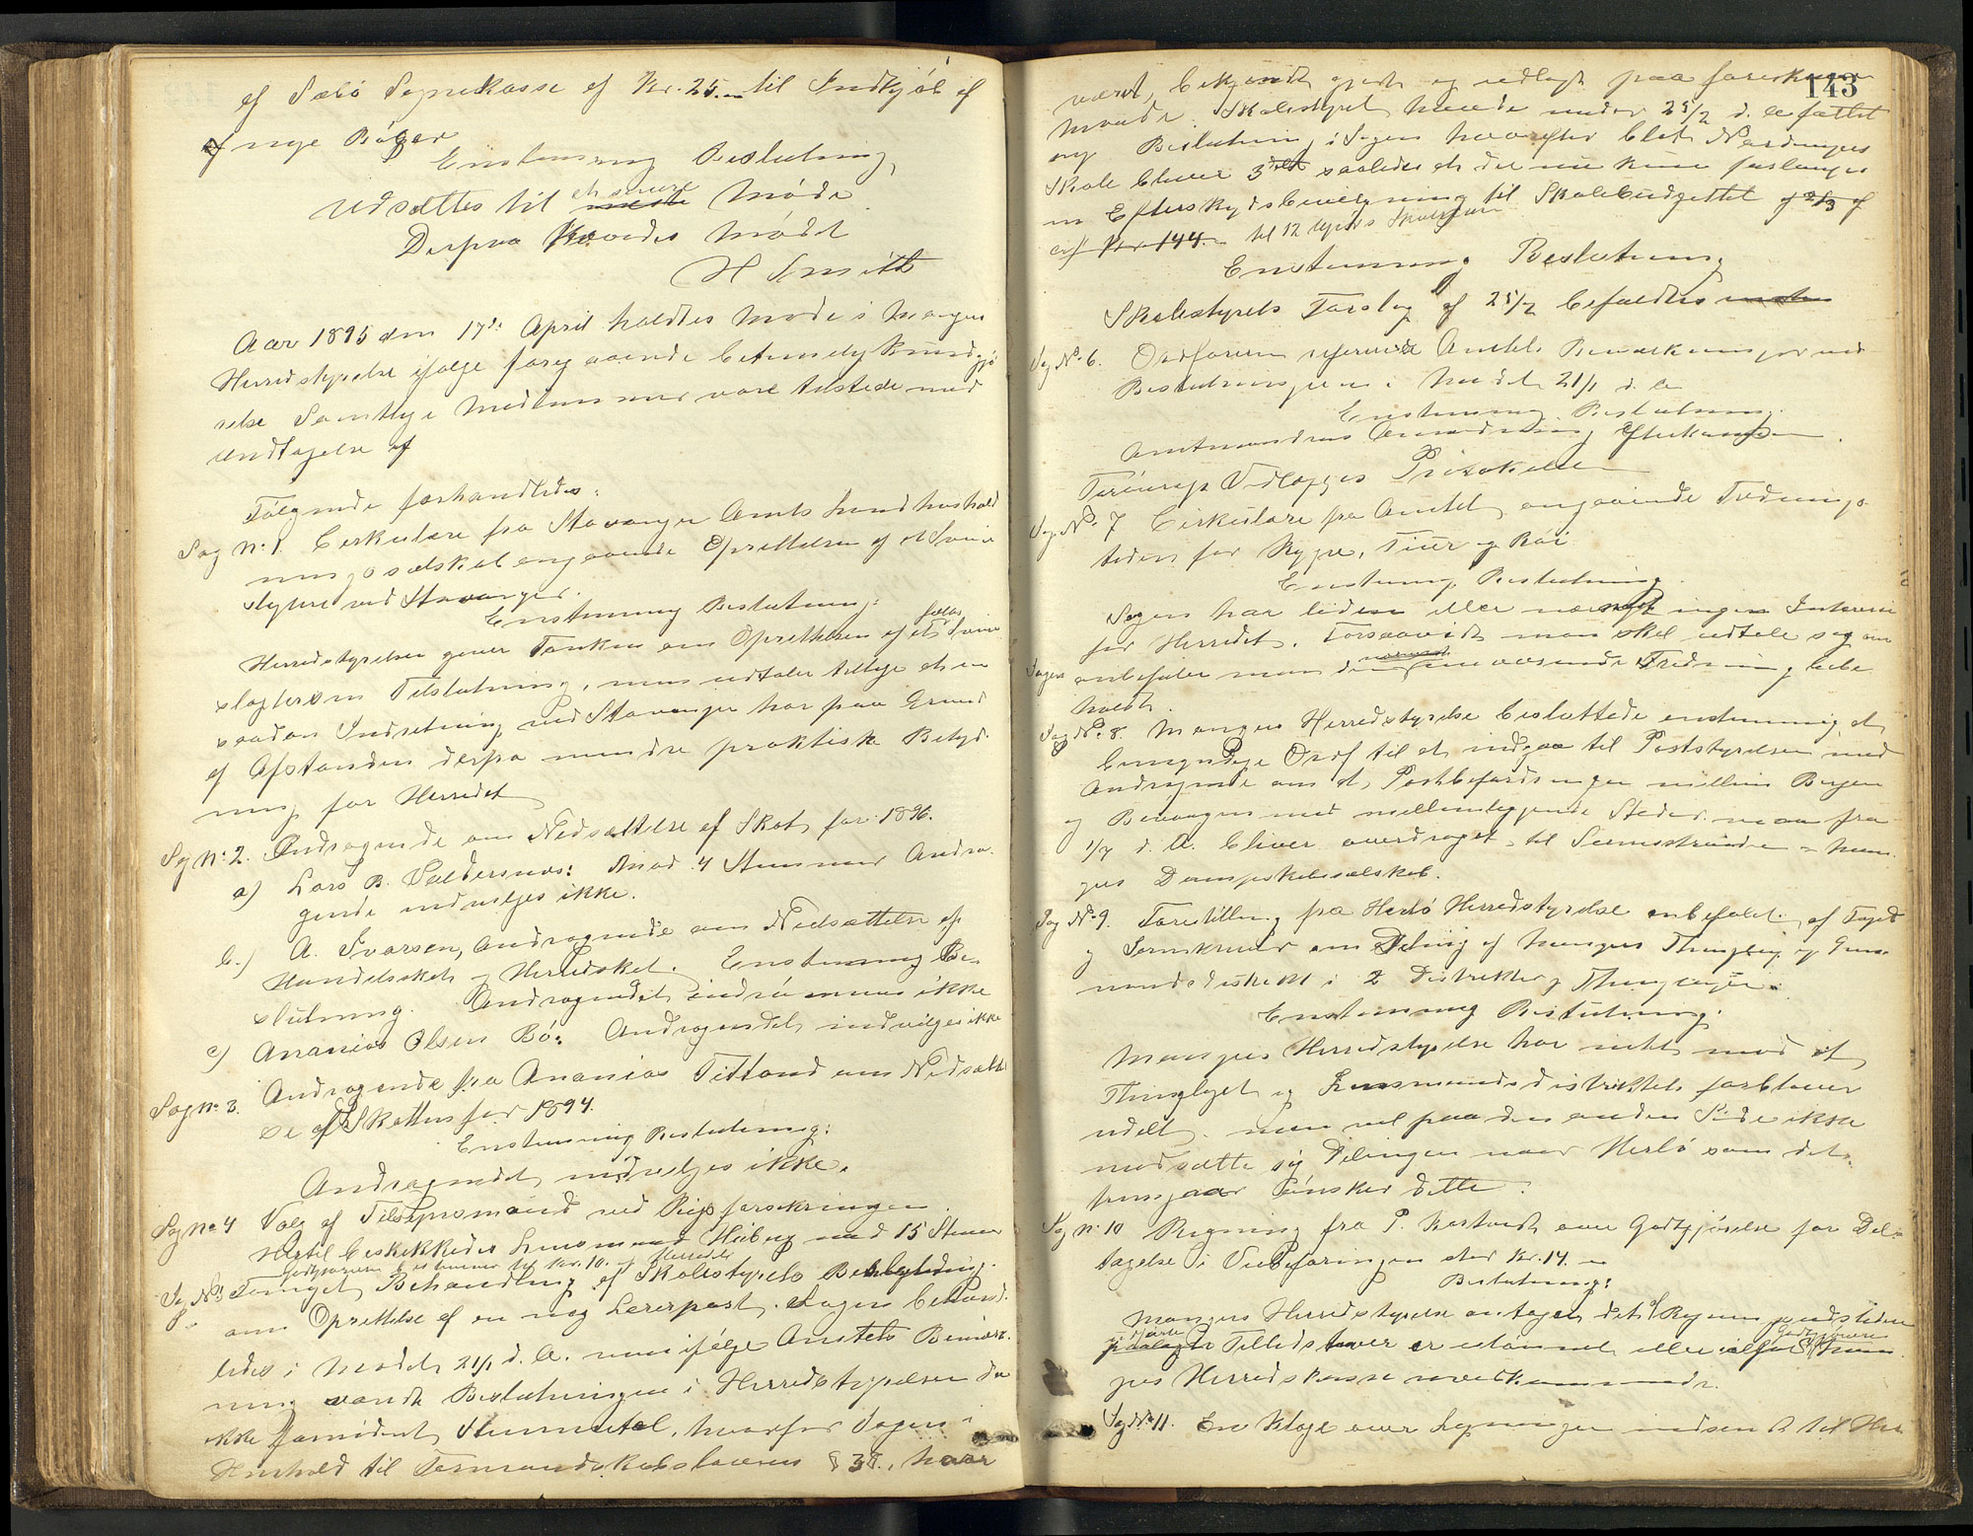 af Sæbø Sognekasse af Kr. 25.- til Indkjøb af
af nye Bøger
Enstemmig Beslutning,
Udsættes til et senere næste Møde
Derpaa hævedes Mødet
H Smith
Aar 1895 den 17de April holdtes Møde i Manger
Herredstyrelse ifølge foregaaende betimelig Kundgjø
relse Samtlige Medlemmer vare tilstede med
Undtagelse af
Følgende forhandledes:
Sag No 1. Cirkulære fra Stavanger Amts Landhushold
ningsselskab angaaende Oprettelsen af et Svine
slagteri ved Stavanger.
Enstemmig Beslutning:
Herredstyrelsen giver Tanken om Oprettelsen af et fælles Svine
slagteri sin Tilslutning, men udtaler tillige at en
saadan Indretning ved Stavanger har paa Grund
af Afstanden derfra mindre praktisk Betyd
ning for Herredet
Sag No 2. Andragende om Nedsættelse af Skat for 1896.
a) Lars B. Valdersnes: Mod 4 Stemmer Andra
gende indvilges ikke.
b.) A. Ivarsen, Andragende om Nedsættelse af
Handelsskat og Herredskat. Enstemmig Be
slutning. Andragendet indrømmes ikke
c) Ananias Olsen Bø: Andragendet indvilges ikke
Sag No 3. Andragende fra Ananias Titland om Nedsættel
se af Skatten for 1894.
Enstemmig Beslutning:
Andragendet indvilges ikke.
Sag No 4 Valg af Tilsynsmand ved Rigsforsikringen.
Hertil beskikkedes Lensmand Høiberg med 15 Stemmer
Godtgjørelsen bestemmes til Kr. 10.- af Herredet
Sag No 5 Fornyet Behandling af Skolestyrets Beslutning
om Oprettelse af en ny Lærerpost. Sagen behand
ledes i Mødet 21/1 d. A. men ifølge Amtets Bemærk
ning vandt Beslutningen i Herredstyrelsen da
ikke fornødent Stemmetal, hvorfor Sagen i
Henhold til Formandskabslovens § 38, har
143
været bekjendtgjort og udlagt paa foreskreven
Maade. Skolestyret havde under 25/2 d. A. fattet
ny Beslutning i Sagen hvorefter blot Nordanger
Skole bliver 3delt saaledes at der nu kun forlanges
en Efterskydsbevilgning til Skolebudgettet af 2/3 af
Kr. 144.- til 12 Ugers
Enstemmig Beslutning
Skolestyrets Forslag af 25/2 bifaldtes
Sag No 6. Ordføreren refererede Amtets Bemærkninger ved
Beslutningerne i Mødet 21/1 d. A.
Enstemmig Beslutning.
Amtmandens Anmodning efterkommes.
Vedlægges Protokollen
Sag No 7 Cirkulære fra Amtet angaaende Frednings
tiden for Rype, Tiur og Røi
Enstemmig Beslutning.
Sagen har liden eller næsten ingen Interesse
for Herredet. Forsaavidt man skal udtale sig om
Sagen anbefaler man den nuværende Fredning bibe
holdt.
Sag No 8. Manger Herredstyrelse besluttede enstemmig at
bemyndige Ordf til at indgaa til Poststyrelsen med
Andragende om at Postbefordringen mellem Bergen
og Bovaagen med mellemliggende Steder maa fra
1/7 d. A. bliver overdraget til Sæimstranden - Man
gers Dampskibsselskab.
Sag No 9. Forestilling fra Herlø Herredstyrelse anbefalet af Foged
og Sorenskriver om Deling af Mangers Thinglag og Lens
mandsdistrikt i 2 Distrikter og Thinglag:
Enstemmig Beslutning:
Mangers Herredstyrelse har intet mod at
Thinglaget og Lensmandsdistriktet forbliver
udelt, men vil paa den anden Side ikke
modsætte sig Delingen naar Herlø som det
fremgaar ønsker dette.
Sag No 10 Regning fra P. Kartveit over Godtgjørelse for Del-
tagelse i Veibefaringen stor Kr. 14.-
Beslutning:
Mangers Herredstyrelse antager det
Tillidshverv er ulønnet eller ialfald Man
gers Herredskasse uvedkommende.
Sag No 11. En Klage over Ligningen indsendt til Her